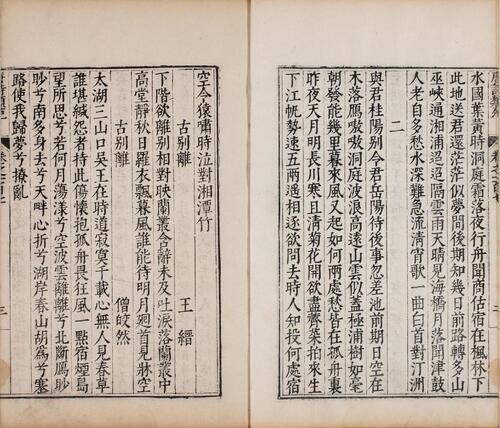 水國葉黃時洞庭霜落夜行舟聞商估宿在楓林下
此地送君還茫茫似夢間後期知幾日前路轉多山
巫峽通湘浦迢迢隔雲雨天晴見海檣月落聞津鼓
人老自多愁水深難急流清宵歌一曲白首對汀洲
二
與君桂陽別令君岳陽待後事忽差池前期日空在
木落鴈嗷嗷洞庭波浪高遠山雲似蓋極浦樹如毫
朝發能幾里暮來風又起如何兩處愁皆在孤舟裏
昨夜天月明長川寒且清菊花開欲盡薺菜拍來生
下江帆勢速五兩遥相逐欲問去時人知投何處宿
空令猿嘯時泣對湘潭竹
古別離 王縉
下階欲離別相對映蘭叢含辭未及吐淚落蘭叢中
高堂靜秋日羅衣飄暮風誰能待明月廻首見牀空
古別離 僧皎然
太湖三山口吳王在時道寂寞千載心無人見春草
誰堪緘怨者持此傷懷抱孤舟畏狂風一點宿煙島
望所思兮若何月蕩漾兮空波雲離離兮北斷鴈眇
眇兮南多身去兮天畔心折兮湖岸春山胡爲兮塞
路使我歸夢兮撩亂